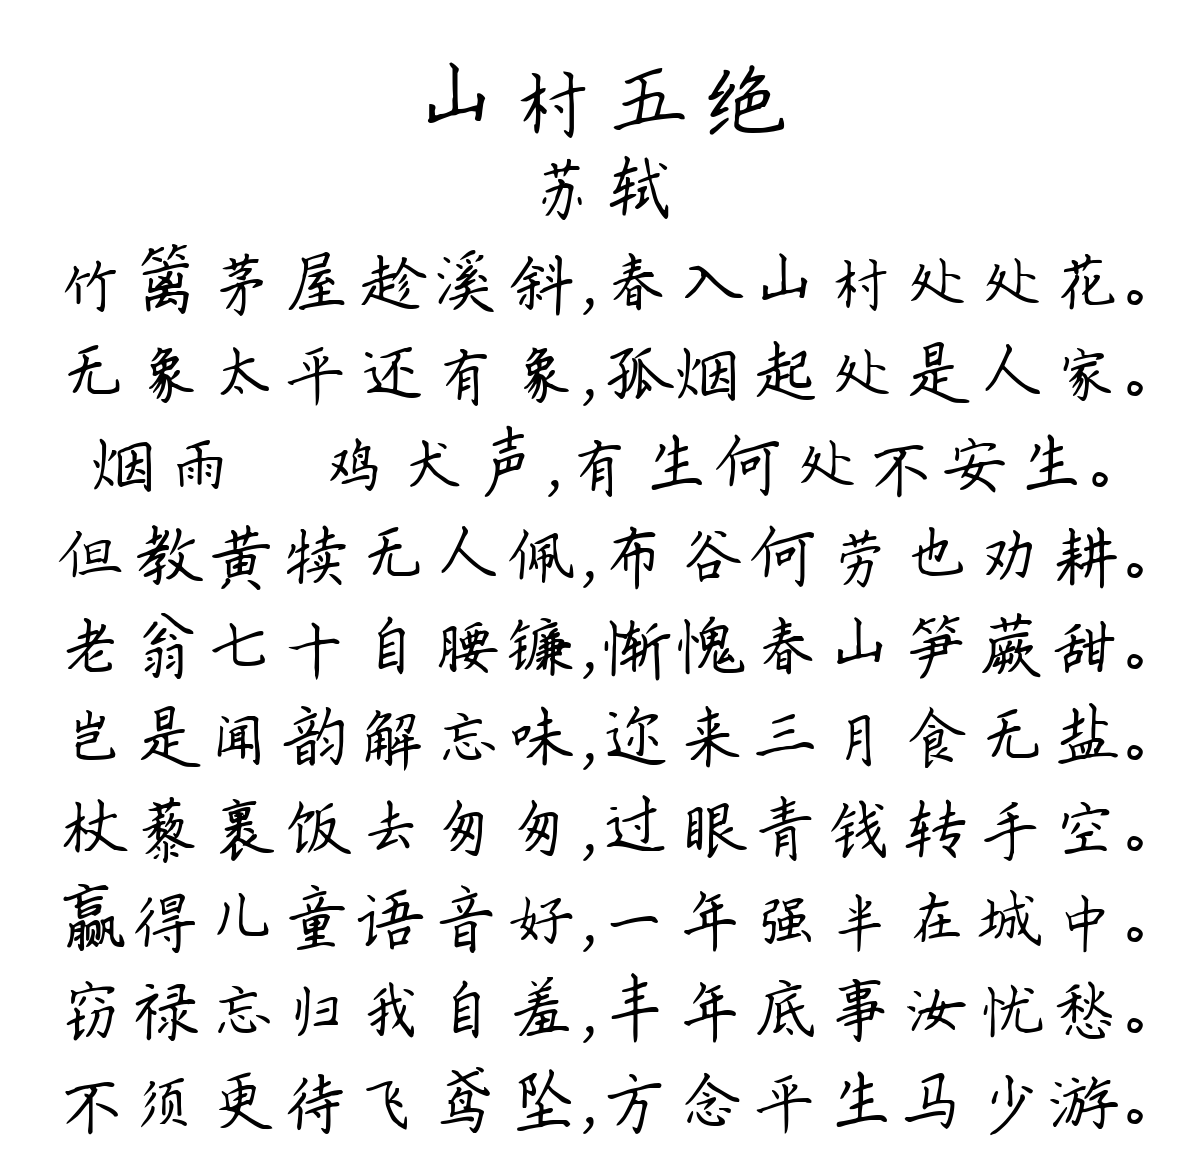 山村五绝
苏轼
竹篱茅屋趁溪斜,春入山村处处花。
无象太平还有象,孤烟起处是人家。
烟雨　鸡犬声,有生何处不安生。
但教黄犊无人佩,布谷何劳也劝耕。
老翁七十自腰镰,惭愧春山笋蕨甜。
岂是闻韵解忘味,迩来三月食无盐。
杖藜裹饭去匆匆,过眼青钱转手空。
赢得儿童语音好,一年强半在城中。
窃禄忘归我自羞,丰年底事汝忧愁。
不须更待飞鸢坠,方念平生马少游。